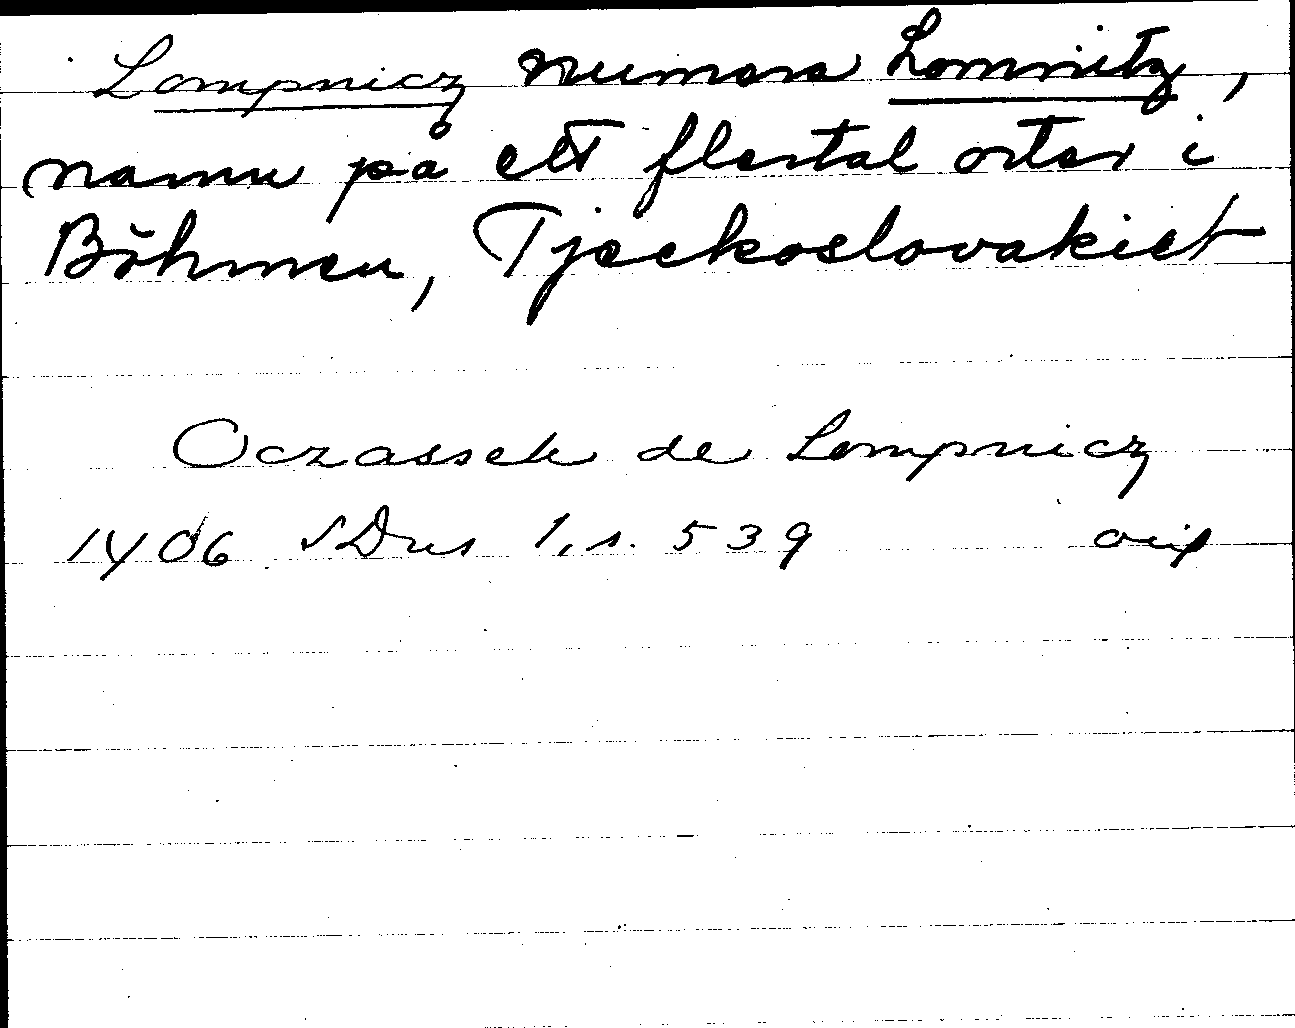 Lompnicz numera Lomnitz,
namn på ett flertal orter i
Böhmen, Tjeckoslovakiet
Oczassek de Lompnicz
1406 SDns 1, s. 539 orig